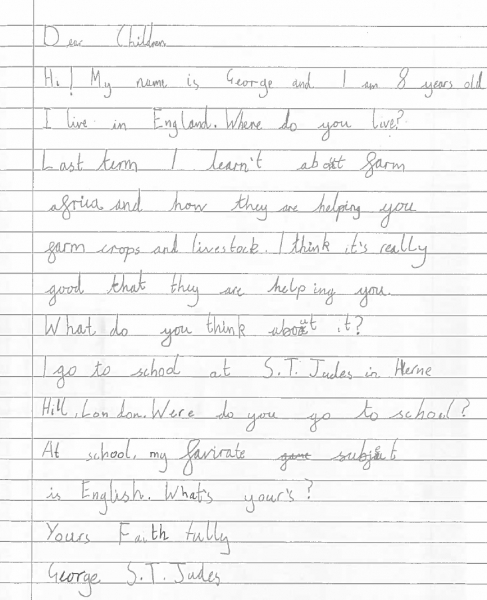 Dear Children
Hi! My name is George and I am 8 years old
I live in England. Where do you live?
Last term I learn't about farm
africa and how they are helping you
farm crops and livestock. I think it's really
good that they are helping you.
What do you think about it?
I go to school at S.T. Judes in Herne
Hill, London. Were do you go to school?
At school, my favirate game subject
is English. What's your's?
Yours Faithfully
George S.T. Judes